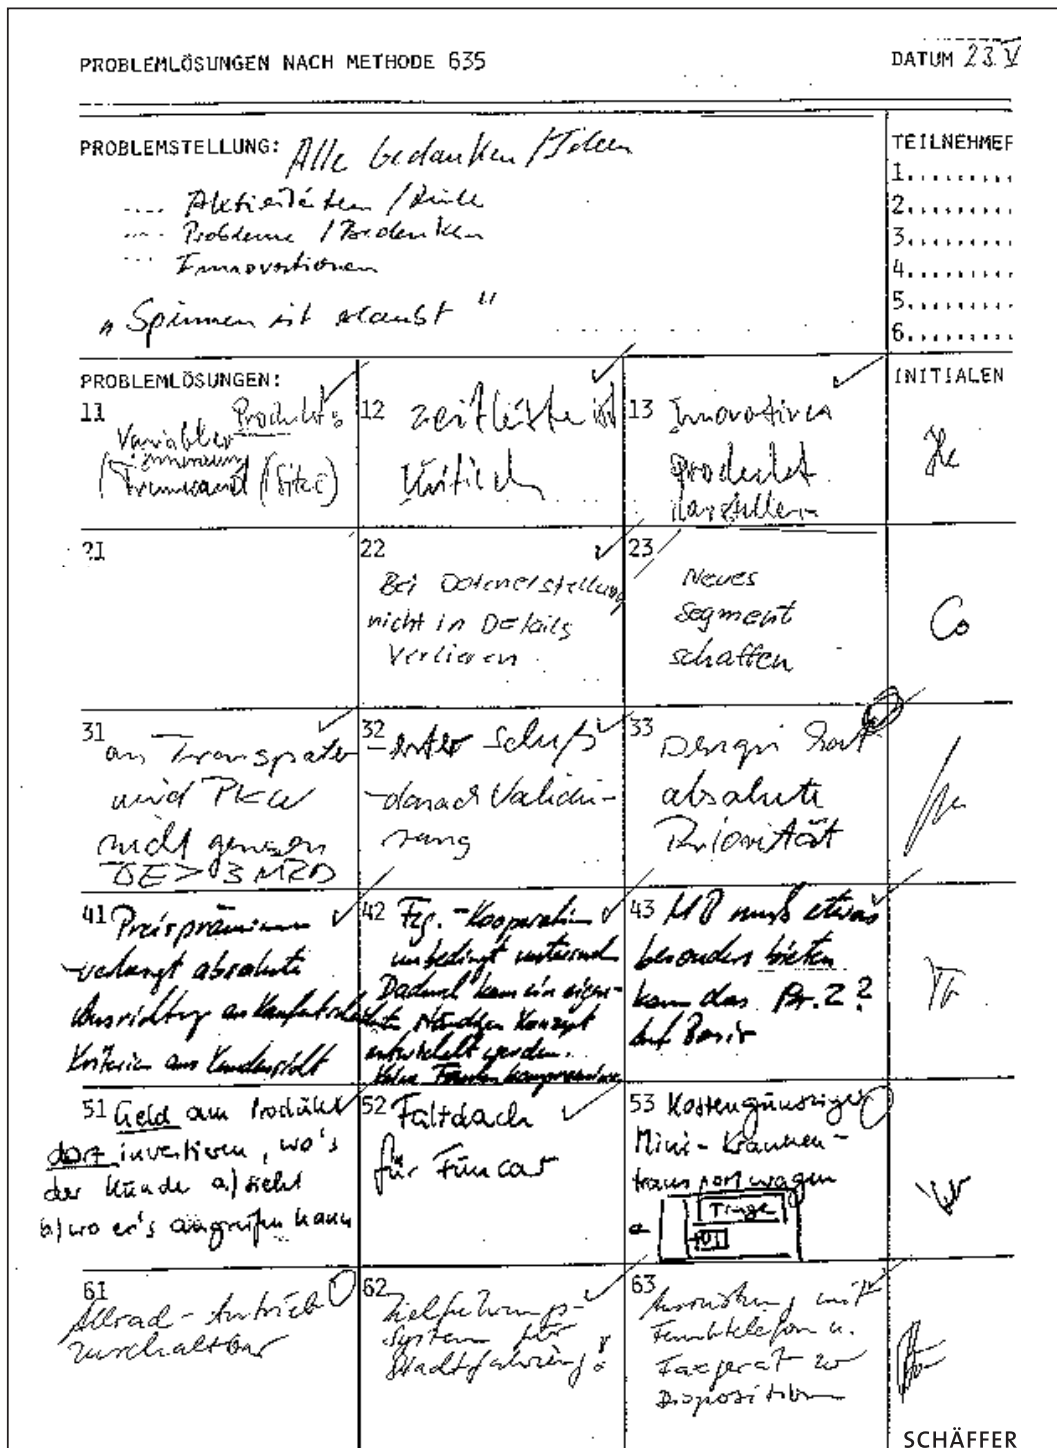 PROBLEMLÖSUNGEN NACH METHODE 635
DATUM 23.V
PROBLEMSTELLUNG: Alle Gedanken / Ideen
.... Aktivitäten / Ziele
.... Probleme / Bedenken
... Innovationen
„Spinnen ist erlaubt"
TEILNEHMER
1.........
2.........
3.........
4.........
5.........
6.........
PROBLEMLÖSUNGEN:
INITIALEN
11
Produkts
Variabler
(Sitze)
12 Zeitleiste ist
kritisch
13 Innovatives
Produkt
darstellen
He
21
22
Bei Datenerstellung
nicht in Details
verlieren
23
Neues
Segment
schaffen
Co
31
am Transporter
wird PKW
nicht genesen
DE > 3 MRD
32
- erster Schuß
- danach Validie-
rung
33
Design hat
absolute
Priorität
41 Preisprämium
verlangt absolute
Ausrichtung an
Kriterien aus Kundensicht
42 Fzg.-Kooperation
unbedingt
Dadurch kann ein eigen-
ständiges Konzept
entwickelt werden.
Keine
43 MB muß etwas
besonders bieten
kann das Br.2?
auf Basis
51 Geld am Produkt
dort investieren, wo's
der Kunde a) sieht
b) wo er's angreifen kann
52 Faltdach
für Funcar
53 Kostengünstiger
Mini-Kranken-
transportwagen
Trage
61
Allrad-Antrieb
zuschaltbar
62
Zielführungs-
system für
63
Ausrüstung mit
Funktelefon u.
Faxgerät zur
Disposition
SCHÄFFER